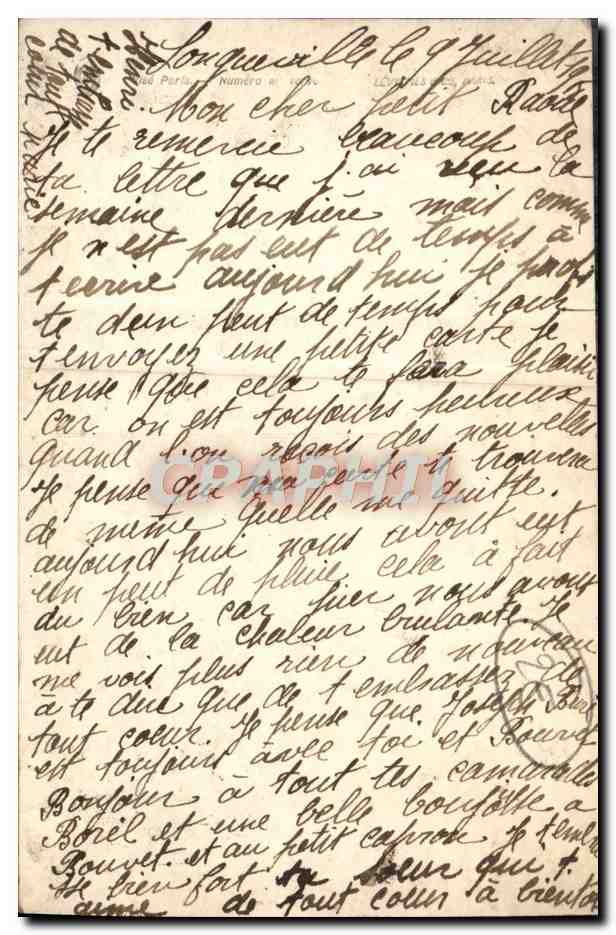 Longueville le 9 Juillet
Mon cher petit
Je te remercie beaucoup de
ta lettre que j.ai reçu la
semaine dernière mais comme
je n est pas eut de temps à
t ecrire aujourd hui je
te d un peut de temps pour
t envoyez une petite carte je
pense que cela te fera plaisir
car on est toujours heureux
quand l.on reçois des nouvelles
Je pense que ma carte te trouvera
de meme quelle me quitte.
aujourd hui nous avont eut
un peut de pluie cela à fait
du bien car hier nous avons
eut de la chaleur brulante. Je
ne vois plus rien de nouveau
à te dire que de t embrasser de
tout coeur. Je pense que Joseph
est toujours avec toi et Bouvet
Bonjour à tout tes camarades
Borel et une belle a
Bouvet. et au petit capron Je t embra
sse bien fort ta soeur qui t.
aime de tout coeur à bientôt
t embrasse
de tout
coeur
Numéro au verso
CPARAMA